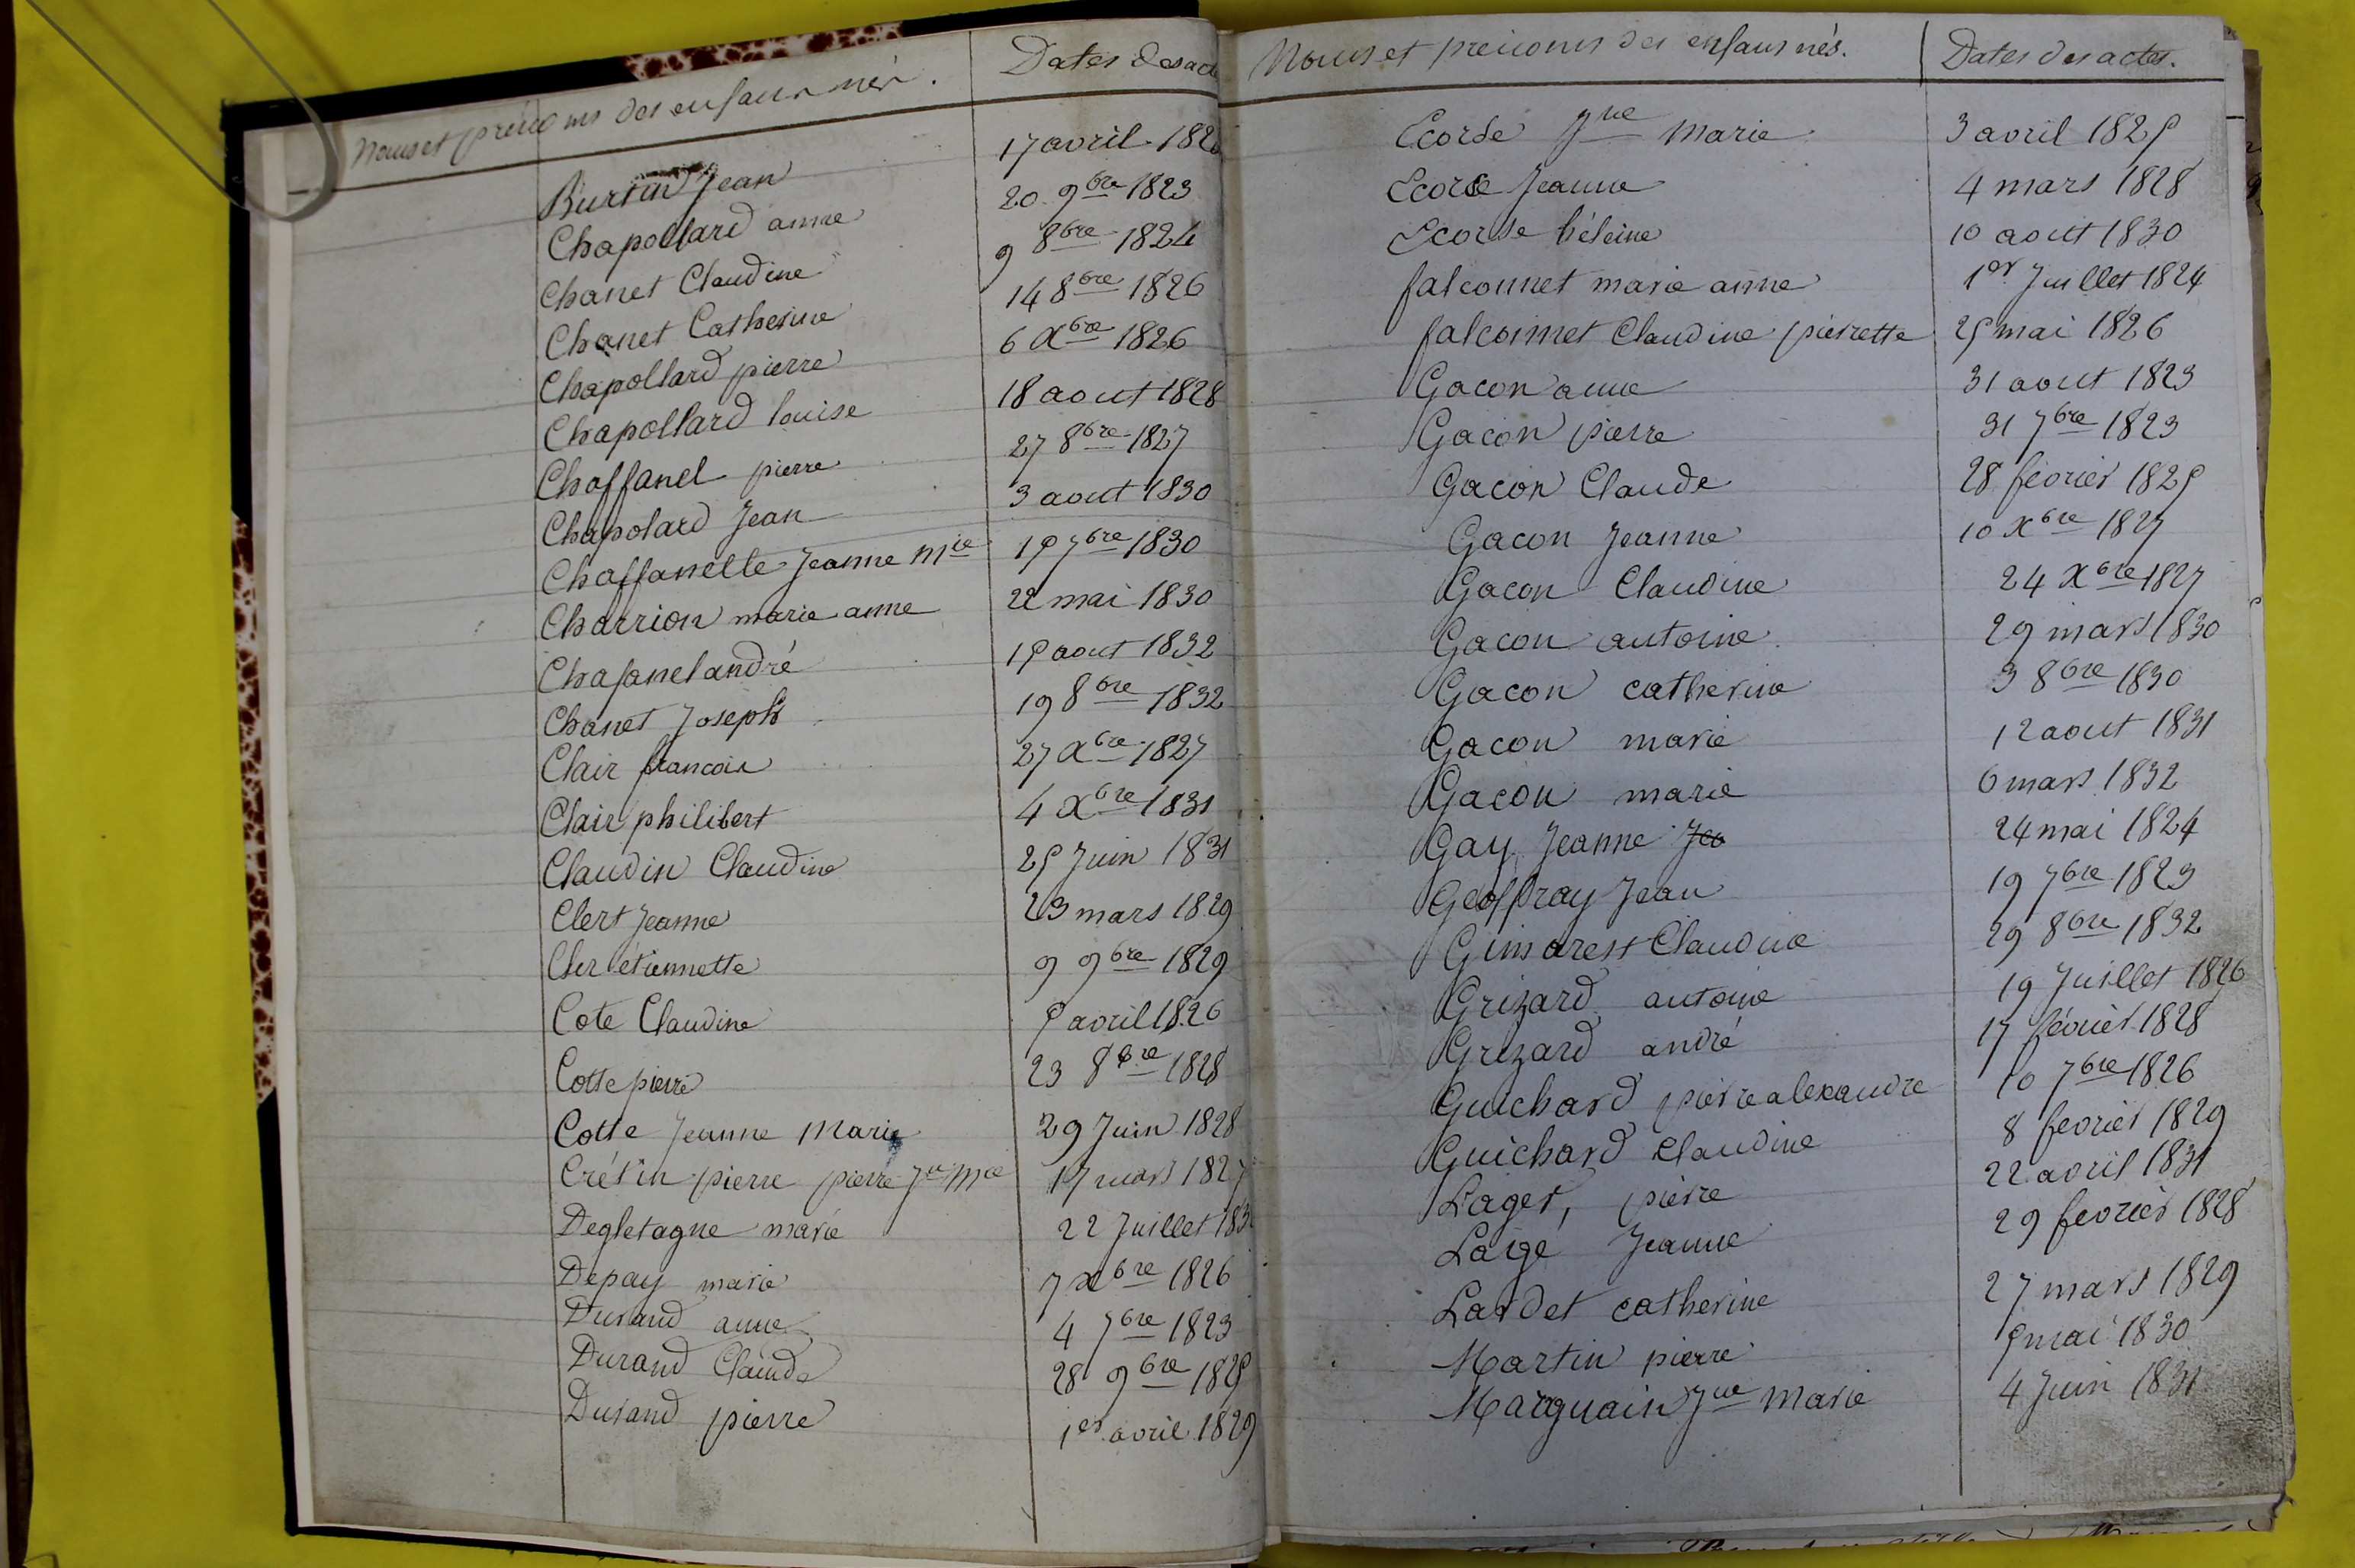 Noms et prénoms des enfans nés. Dates des acte
Burtin Jean 17 avril 182
Chapollard anne 20 9bre 1823
Chanet Claudine 9 8bre 1824
Chanet Catherine 14 8bre 1826
Chapollard pierre 6 Xbre 1826
Chapollard louise 18 aout 1828
Choffanel pierre 27 8bre 1827
Chapolard Jean 3 aout 1830
Choffanelle Jeanne Mie 15 7bre 1830
Charrion marie anne 22 mai 1830
Chafanel andré 15 aout 1832
Chanet Joseph 19 8bre 1832
Clair francois 27 Xbre 1827
Clair philibert 4 Xbre 1831
Claudin Claudine 25 Juin 1831
Clert Jeanne 23 mars 1829
Cler étiennette 9 9bre 1829
Cote Claudine 5 avril 1826
Cotte pierre 23 8bre 1828
Cotte Jeanne Marie 29 Juin 1828
Crétin pierre pierre Jn Mie 17 mars 1827
Degletagne marie 22 Juillet 183
Depay marie 7 Xbre 1826
Durand anne 4 7bre 1823
Durand Claude 28 9bre 1825
Durand pierre 1er avril 1829
Noms et prénoms des enfans nés. Dates des actes.
Ecorse Jne Marie 3 avril 1825
Ecorse Jeanne 4 mars 1828
Ecorse héleine 10 aout 1830
falconnet marie anne 1er Juillet 1824
falconnet Claudine pierrette 25 mai 1826
Gacon anne 31 aout 1823
Gacon pierre 31 7bre 1823
Gacon Claude 28 fevrier 1825
Gacon Jeanne 10 Xbre 1827
Gacon Claudine 24 Xbre 1827
Gacon antoine 29 mars 1830
Gacon catherine 3 8bre 1830
Gacon marie 12 aout 1831
Gacon marie 6 mars 1832
Gay Jeanne Jea 24 mai 1824
Geoffray Jean 19 7bre 1823
Gimarest Claudine 29 8bre 1832
Grizard antoine 19 Juillet 1826
Grizard andré 17 février 1828
Guichard pierre alexandre 10 7bre 1826
Guichard Claudine 8 fevrier 1829
Lager, pierre 22 avril 1831
Laige Jeanne 29 fevrier 1828
Lardet catherine 27 mars 1829
Martin pierre 5 mai 1830
Marguain Jne Marie 4 Juin 1831